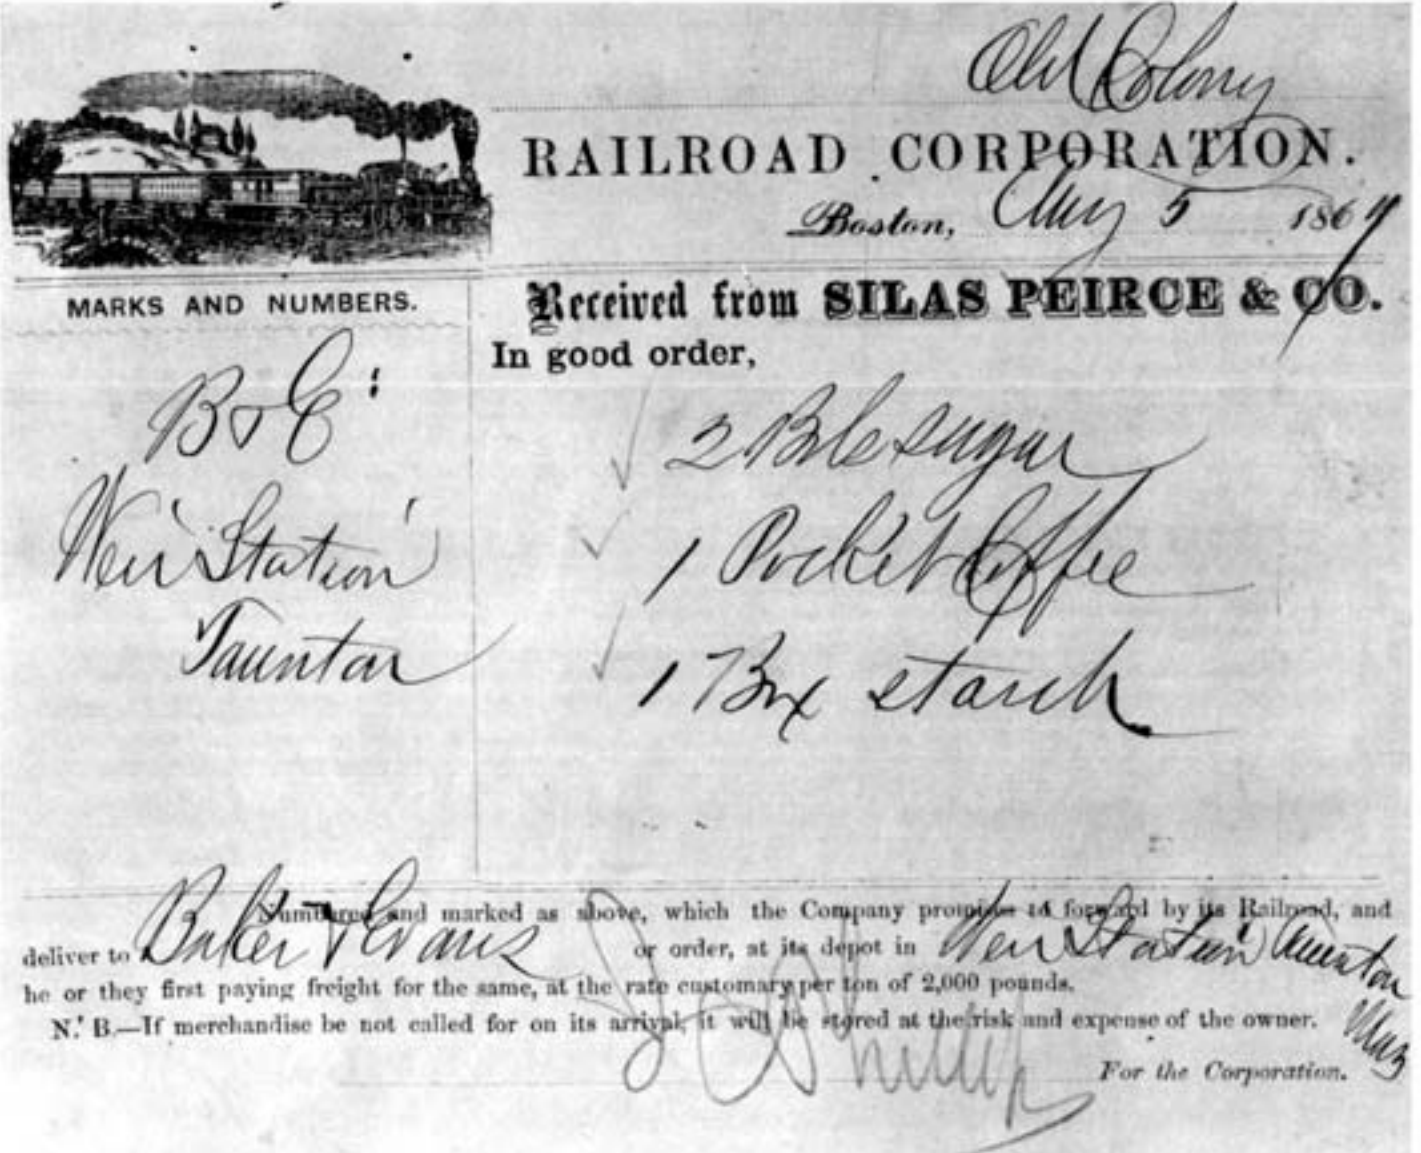 Old Colony
RAILROAD CORPORATION.
Boston, Aug 5 1867
MARKS AND NUMBERS.
Received from SILAS PEIRCE & CO.
In good order,
B & E
Weir Station
Taunton
2 Bbls sugar
1 Pocket Coffee
1 Box starch
Numbered and marked as above, which the Company promises to forward by its Railroad, and
deliver to Baker & Evans or order, at its depot in Weir Station Taunton
he or they first paying freight for the same, at the rate customary per ton of 2,000 pounds. Mass
N. B.—If merchandise be not called for on its arrival, it will be stored at the risk and expense of the owner.
For the Corporation.